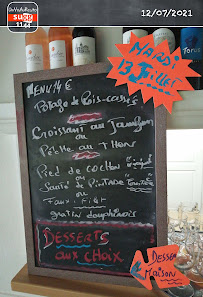 12/07/2021
MARDI
13 Juillet
MENU 14 €
Potage de Pois-cassés
Croissant au Jambon
ou
Pêche au Thon
Pied de cochon
ou
Sauté de Pintade
ou
Faux-Filet
gratin dauphinois
DESSERTS
AUX CHOIX
DESSERT
MAISON